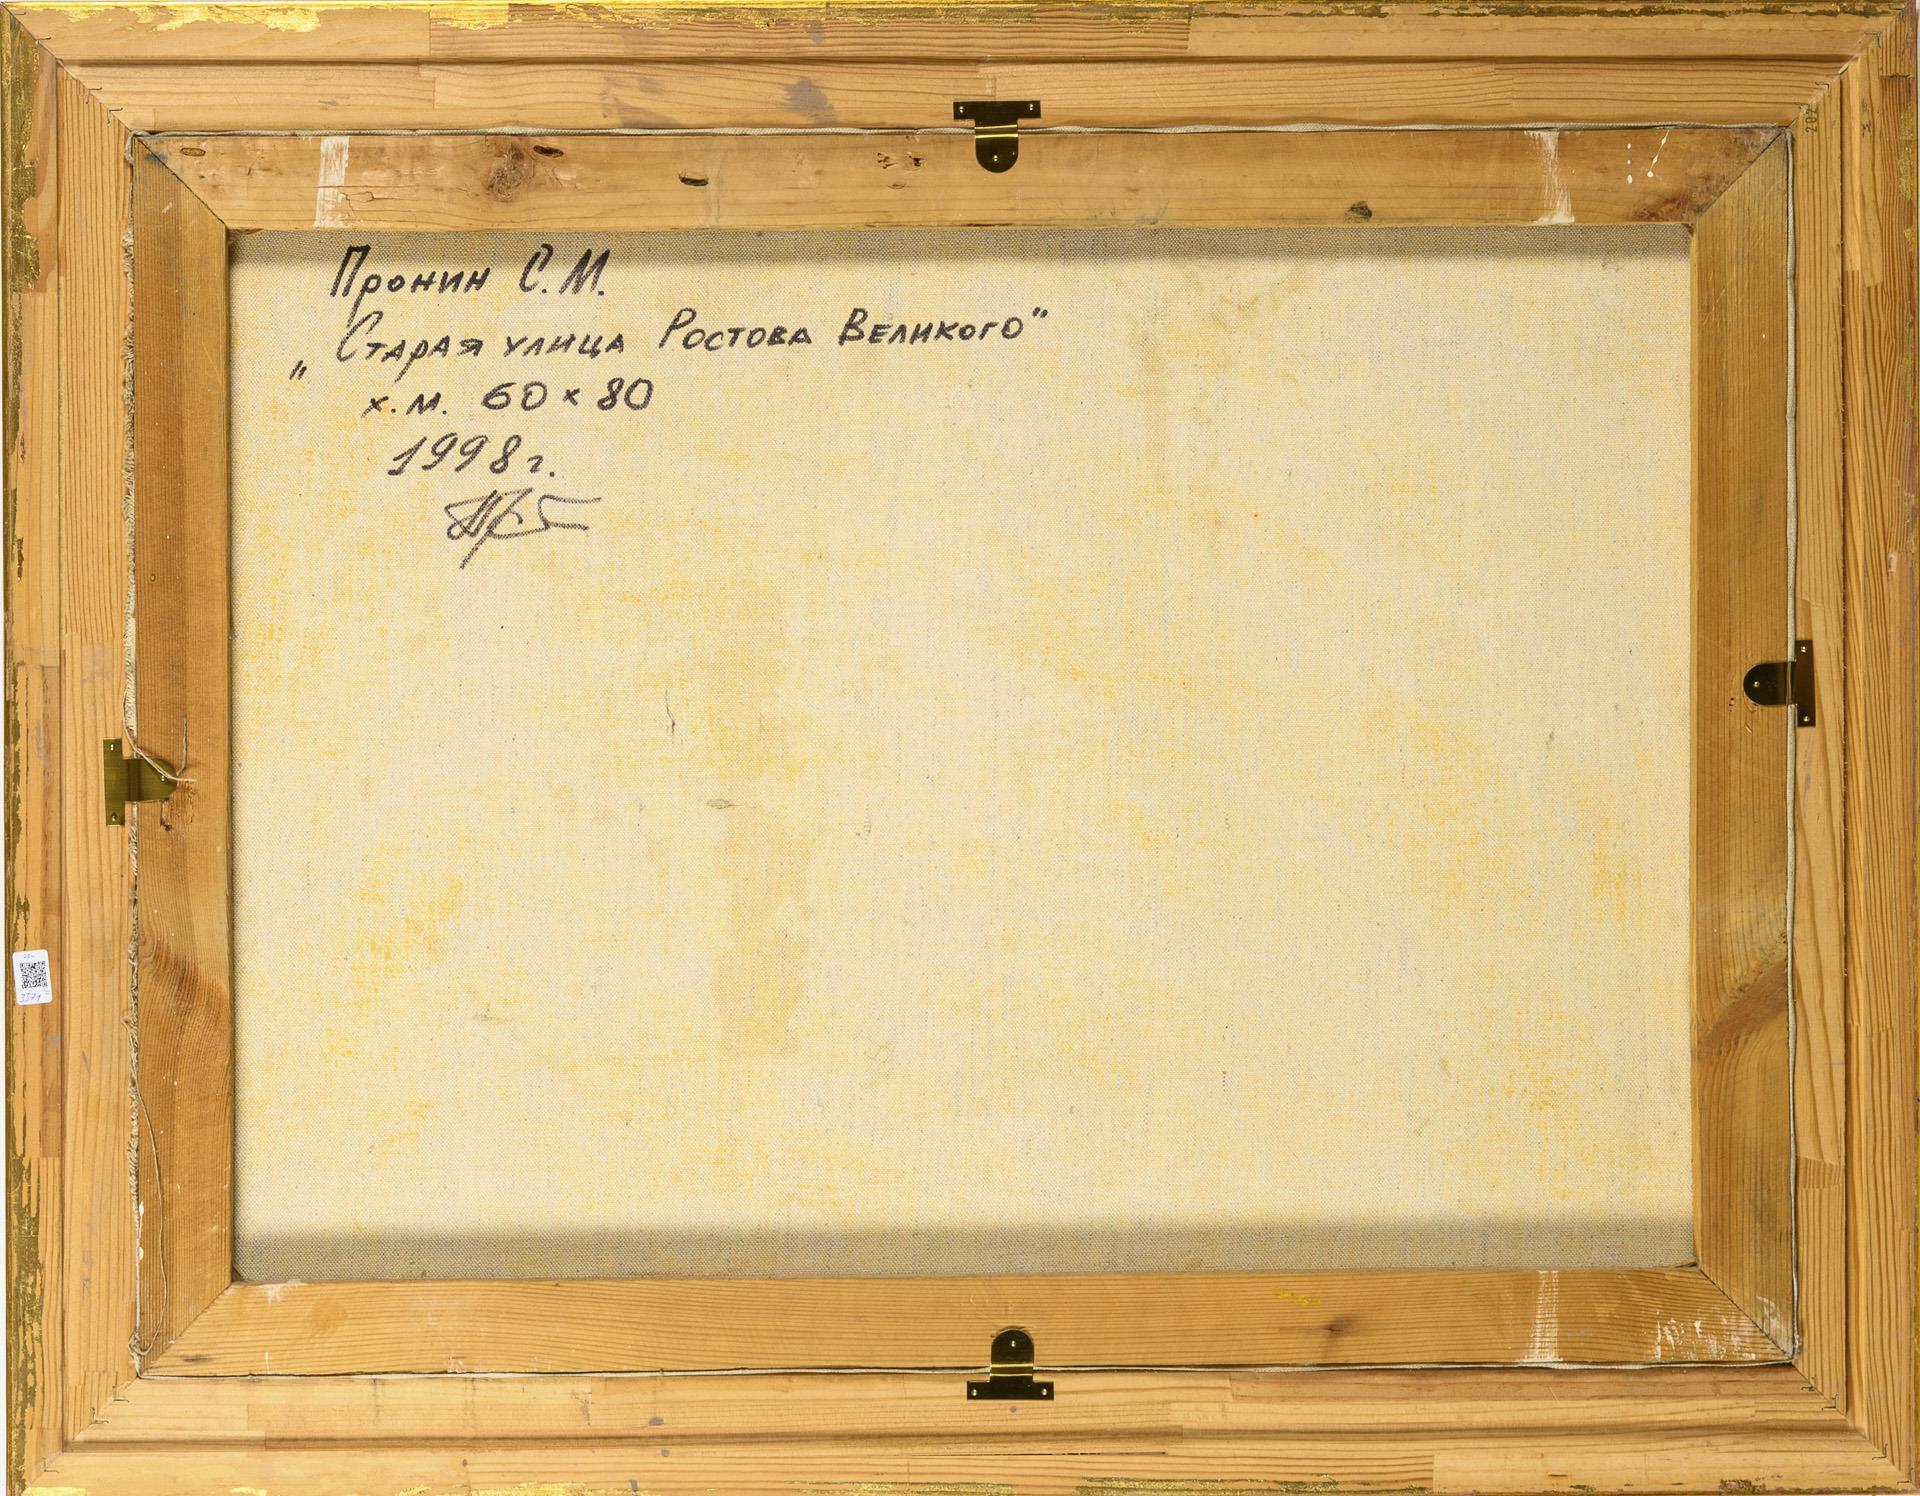 Пронин С.М.
„Старая улица Ростова Великого"
х.м. 60 x 80
1998 г.